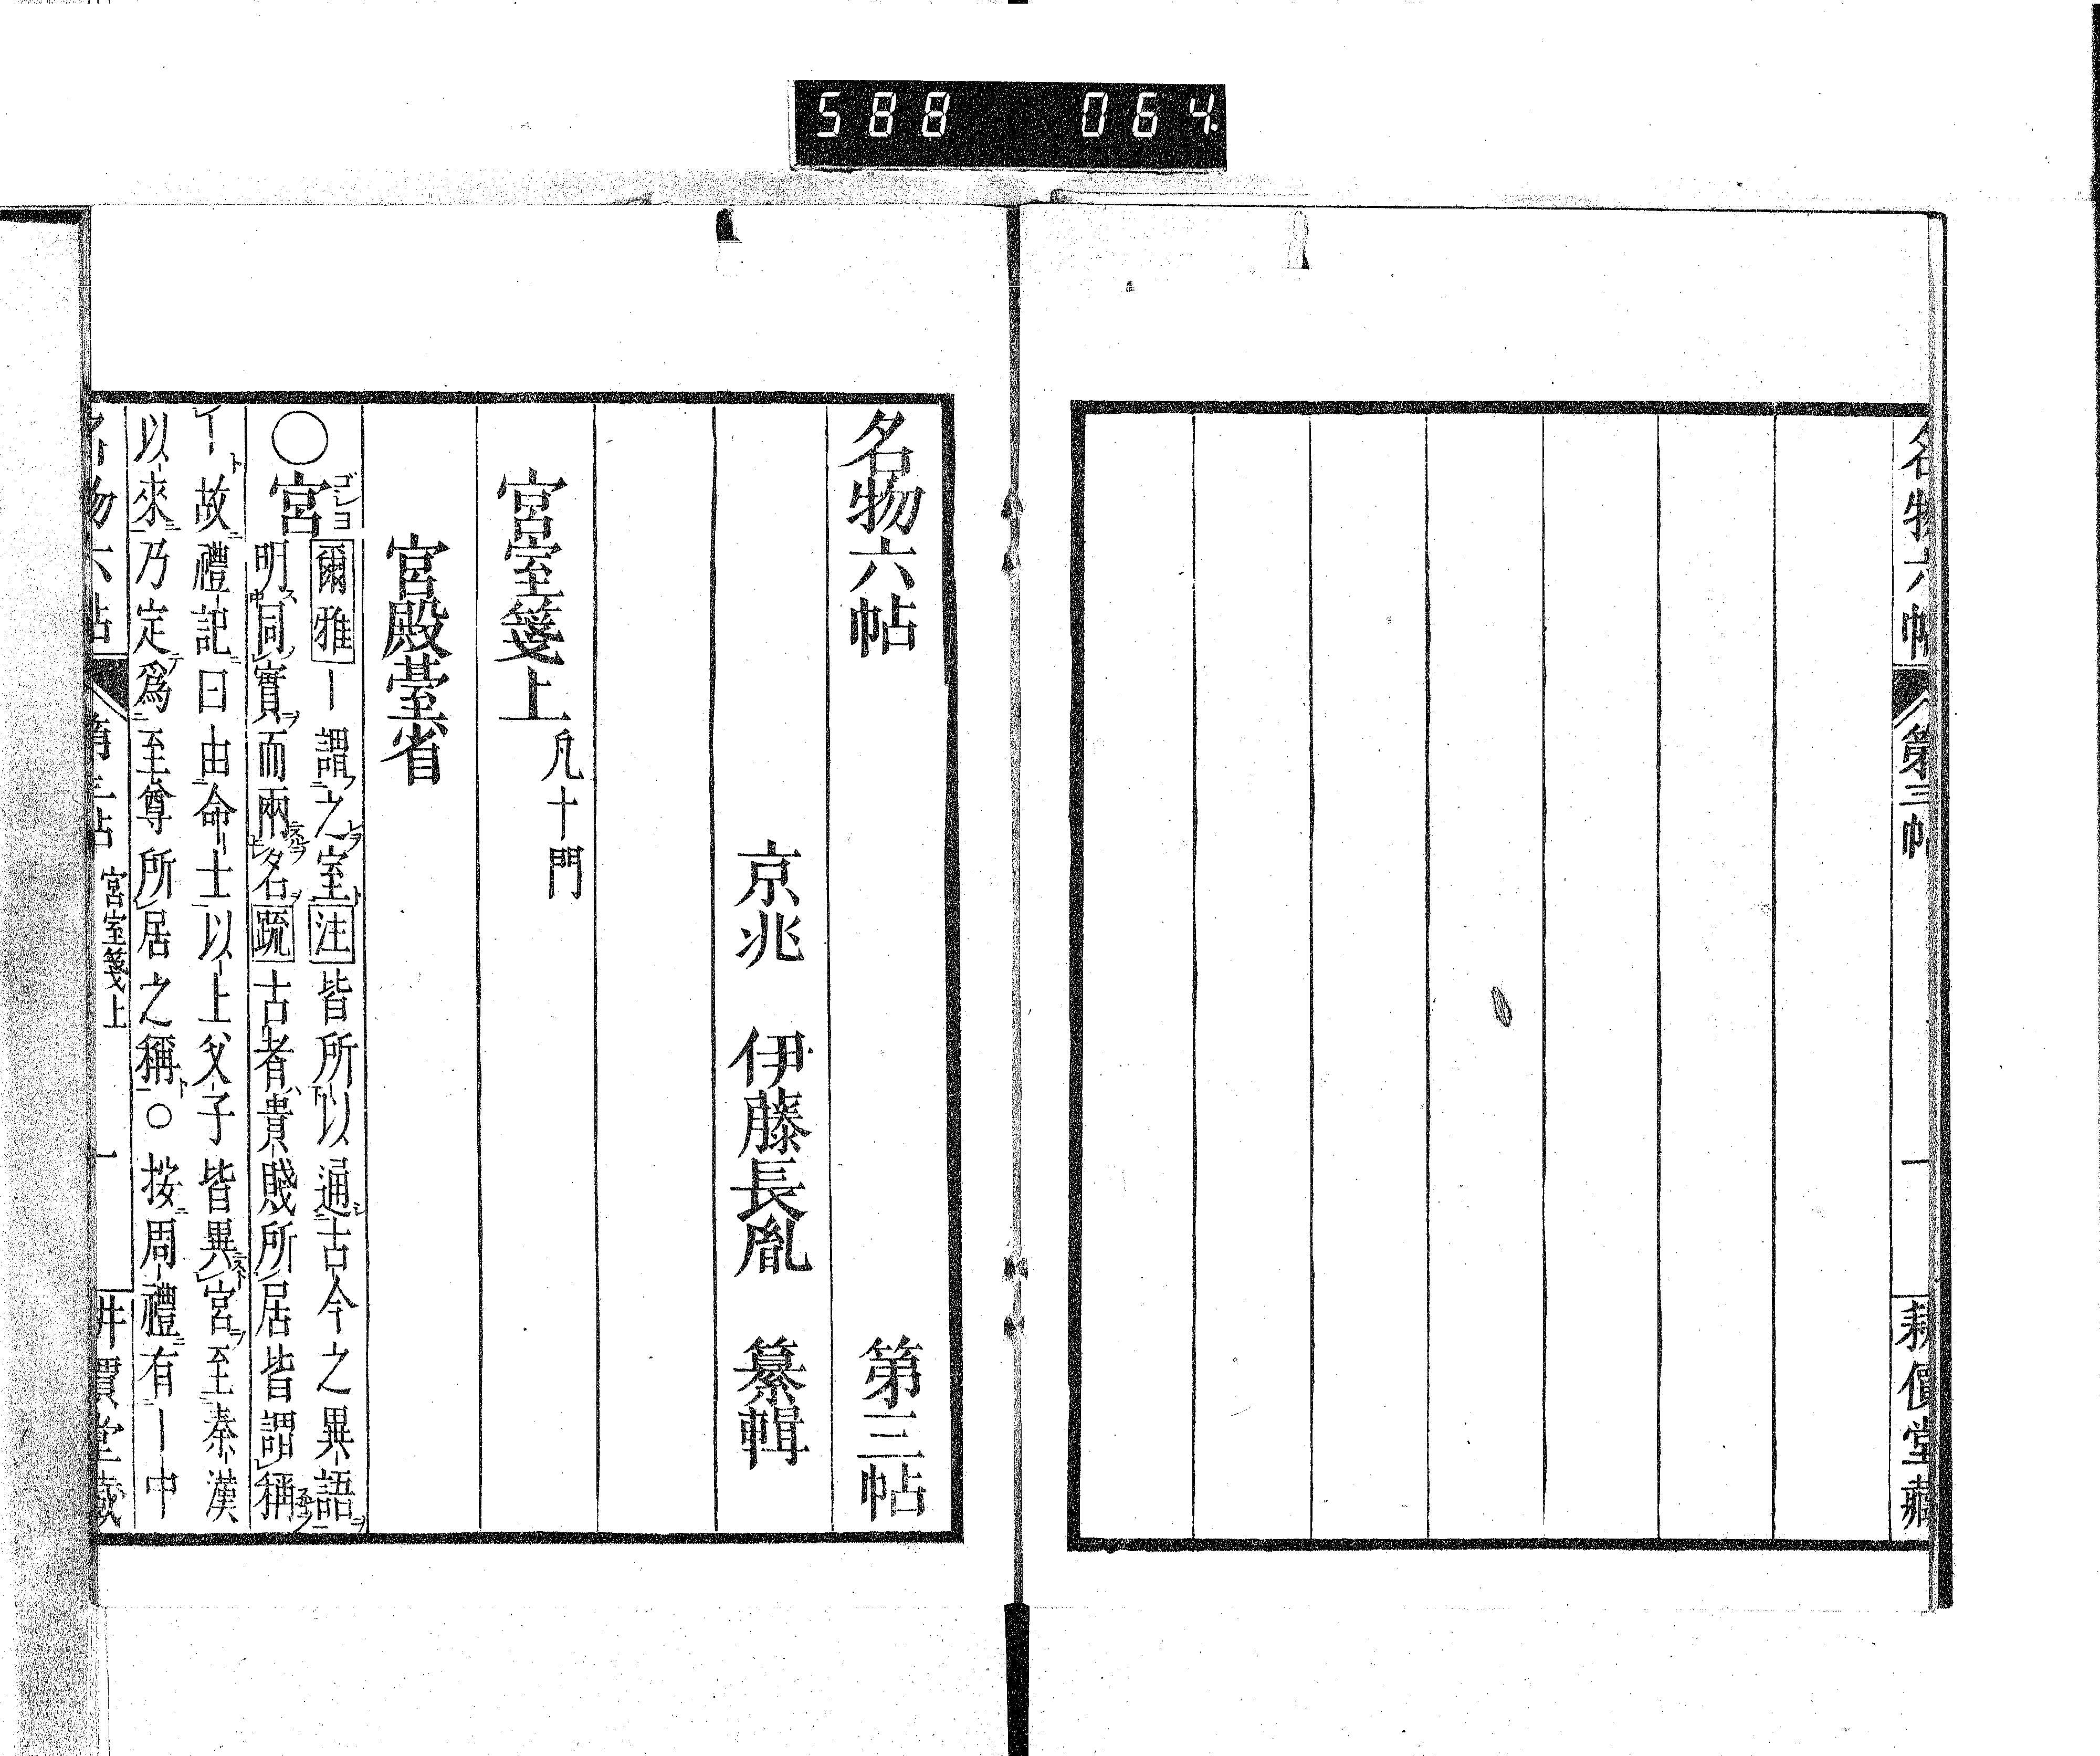 588 064
名物六帖
第三帖
一
耕價堂藏
名物六帖 第三帖
京兆 伊藤長胤 纂輯
宮室箋上 凡十門
宮殿臺省
○宮 ゴショ
爾雅｜謂之室注皆所以通古今之異語
明同實而兩名疏古者貴賤所居皆謂稱
｜故禮記曰由命士以上父子皆異宮至秦漢
以來乃定爲至尊所居之稱○按周禮有｜中
名物六帖
第三帖 宮室箋上
一
耕價堂藏